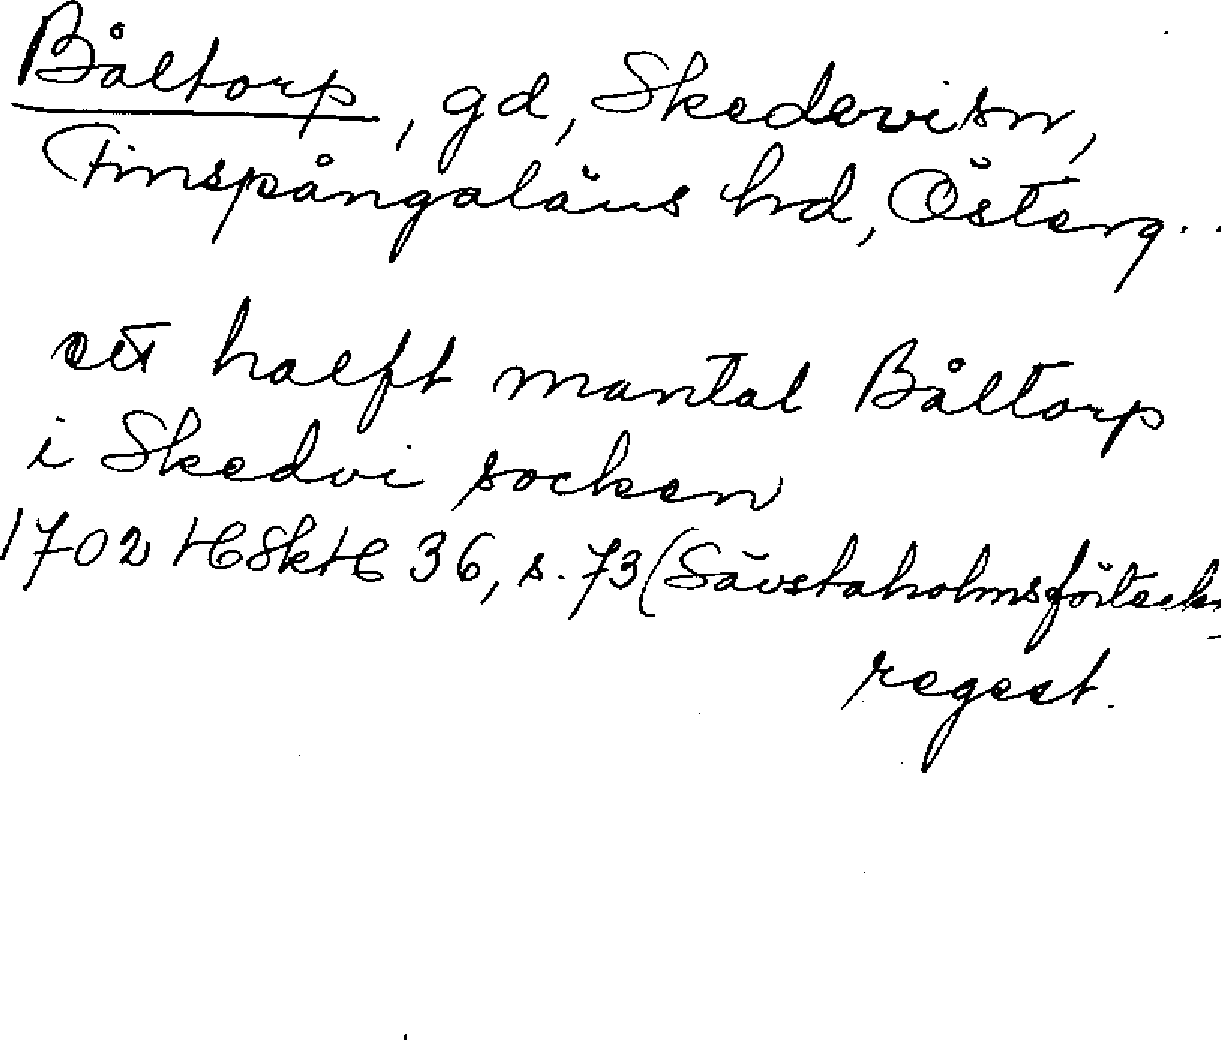 Båltorp, gd, Skedevi sn,
Finspångaläns hd, Österg..
ett halft mantal Båltorp
i Skedvi socken
1702 HSkH 36, s. 73 (Sävstaholmsförteckn
regest.